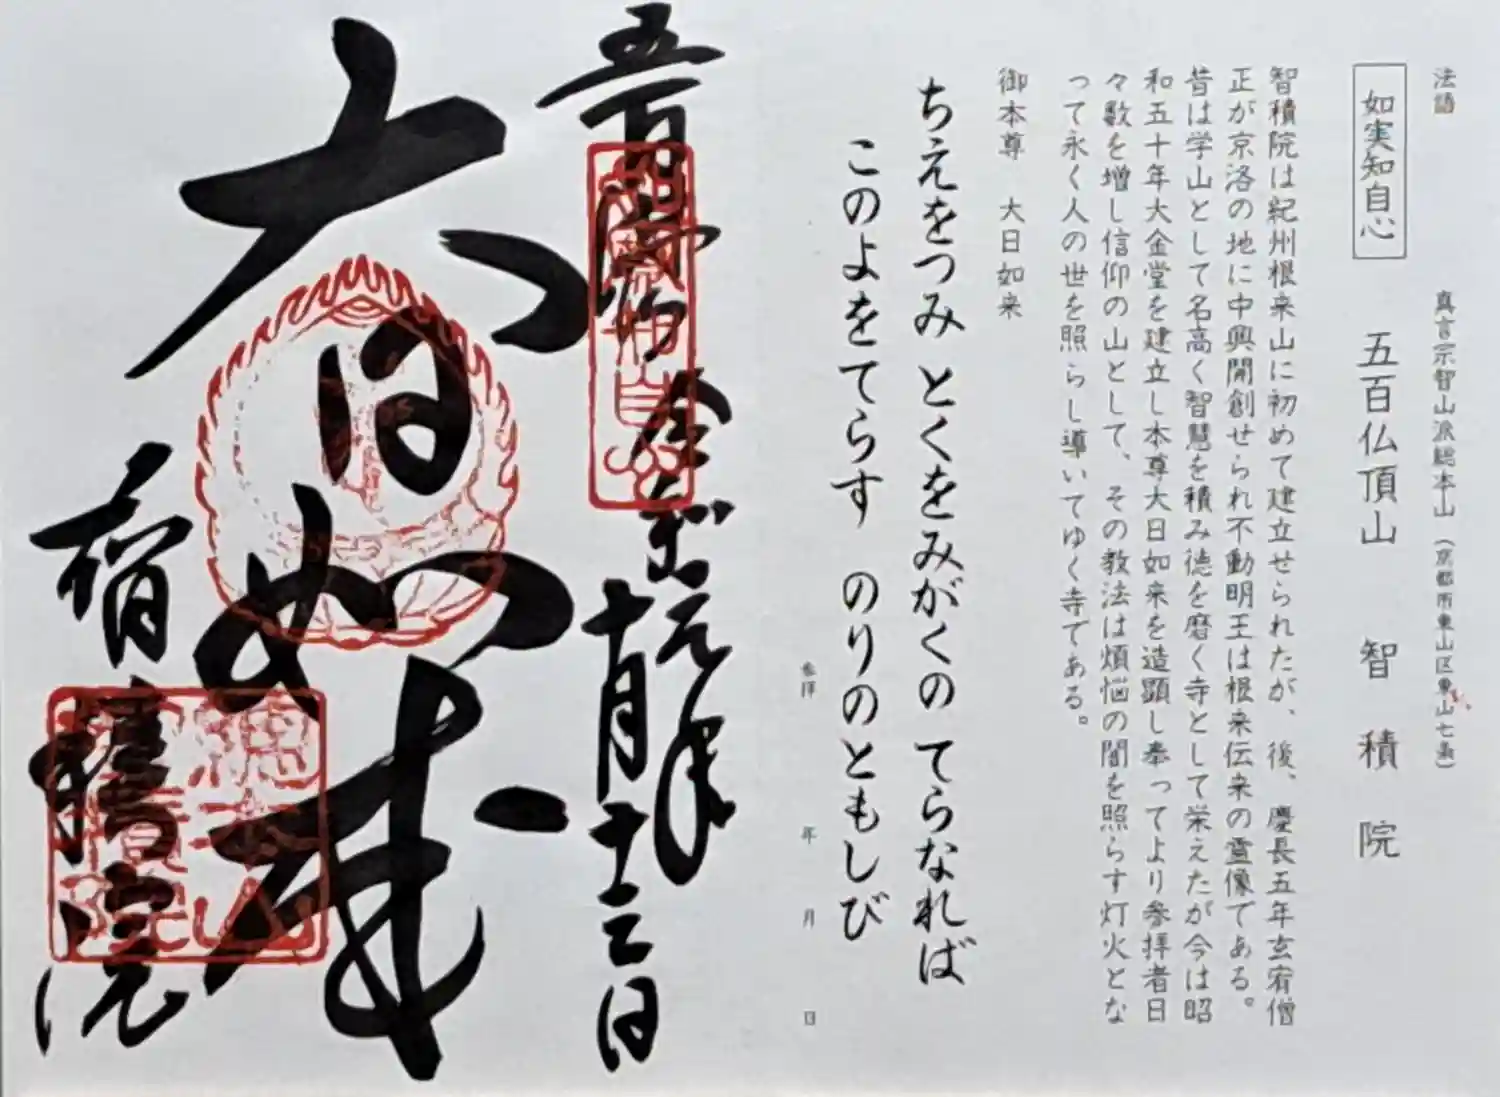 法語
真言宗智山派総本山(京都市東山区東山七条)
如実知自心
五百仏頂山 智積院
智積院は紀州根来山に初めて建立せられたが、後、慶長五年玄宥僧
正が京洛の地に中興開創せられ不動明王は根来伝来の霊像である。
昔は学山として名高く智慧を積み徳を磨く寺として栄えたが今は昭
和五十年大金堂を建立し本尊大日如来を造顕し奉ってより参拝者日
々数を増し信仰の山として、その教法は煩悩の闇を照らす灯火とな
って永く人の世を照らし導いてゆく寺である。
御本尊 大日如来
ちえをつみ とくをみがくの てらなれば
このよをてらす のりのともしび
参拝 年 月 日
十月十三日
大日如来
智積院